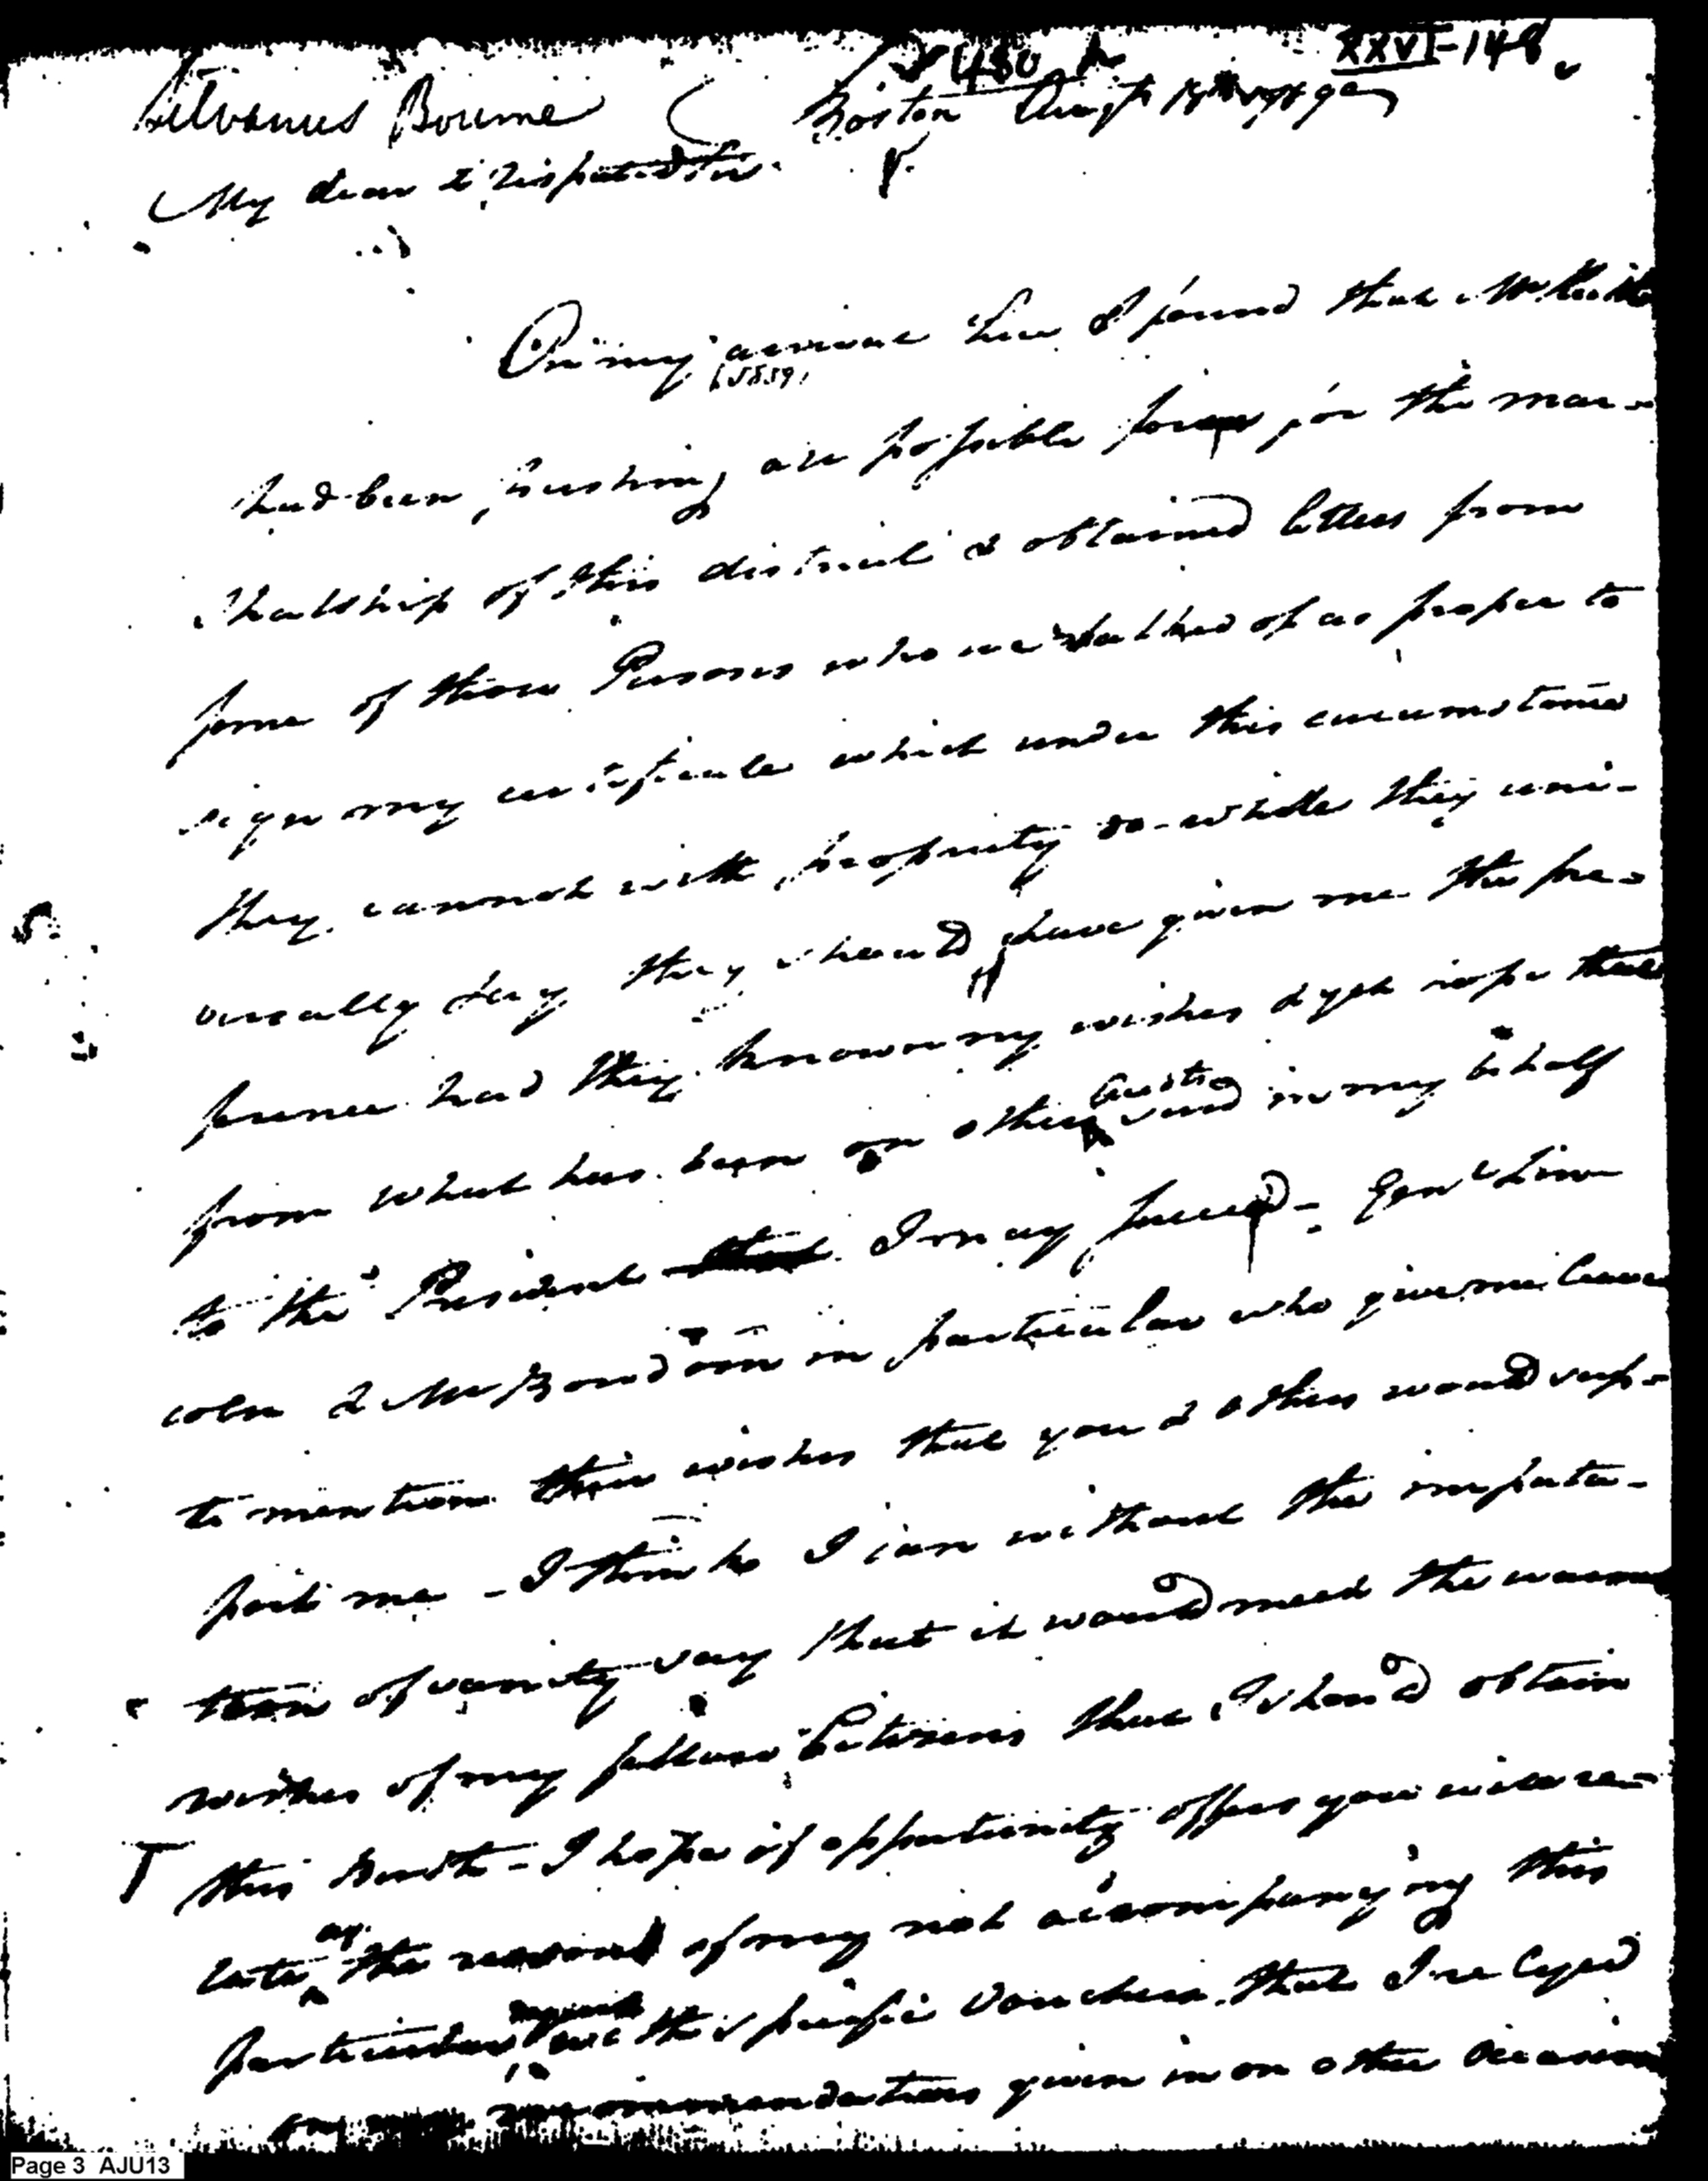 XXVI-148
Silvanus Bourne Boston Augt
My dear & respected Sir
On my arrival here I found that Mr
had been pushing all possible for the mar-
shallship of this district & obtained letters from
some of those Persons who we talked of as proper to
sign my certificate which under this circumstance
they cannot with propriety do - while they uni-
versally say they should have given me the pre-
ference had they known my wishes & yet hope that
from what has been on other said in my behalf
to the President I may succeed - Genl Lin-
coln & Mr Bowdoin in particular who give me leave
to mention their wishes that you & others would sup-
port me - I think I can without the imputa-
tion of vanity say that it would meet the warm
wishes of my fellow Citizens that I should obtain
this birth - I hope if opportunity offers you will re-
late the reasons of my not accompanying this
particular with specific vouchers that I relyed
on recommendations given in on other occasions
Page 3 AJU13